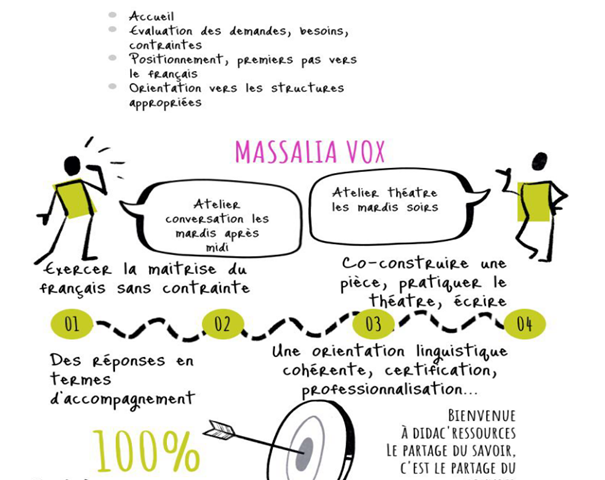 Accueil
Evaluation des demandes, besoins,
contraintes
Positionnement, premiers pas vers
le français
Orientation vers les structures
appropriées
MASSALIA VOX
Atelier
conversation les
mardis après
midi
Atelier théatre
les mardis soirs
Exercer la maitrise du
français sans contrainte
Co-construire une
pièce, pratiquer le
théatre, écrire
01
02
03
04
Des réponses en
termes
d'accompagnement
Une orientation linguistique
cohérente, certification,
professionnalisation...
100%
BIENVENUE
À DIDAC'RESSOURCES
LE PARTAGE DU SAVOIR,
C'EST LE PARTAGE DU